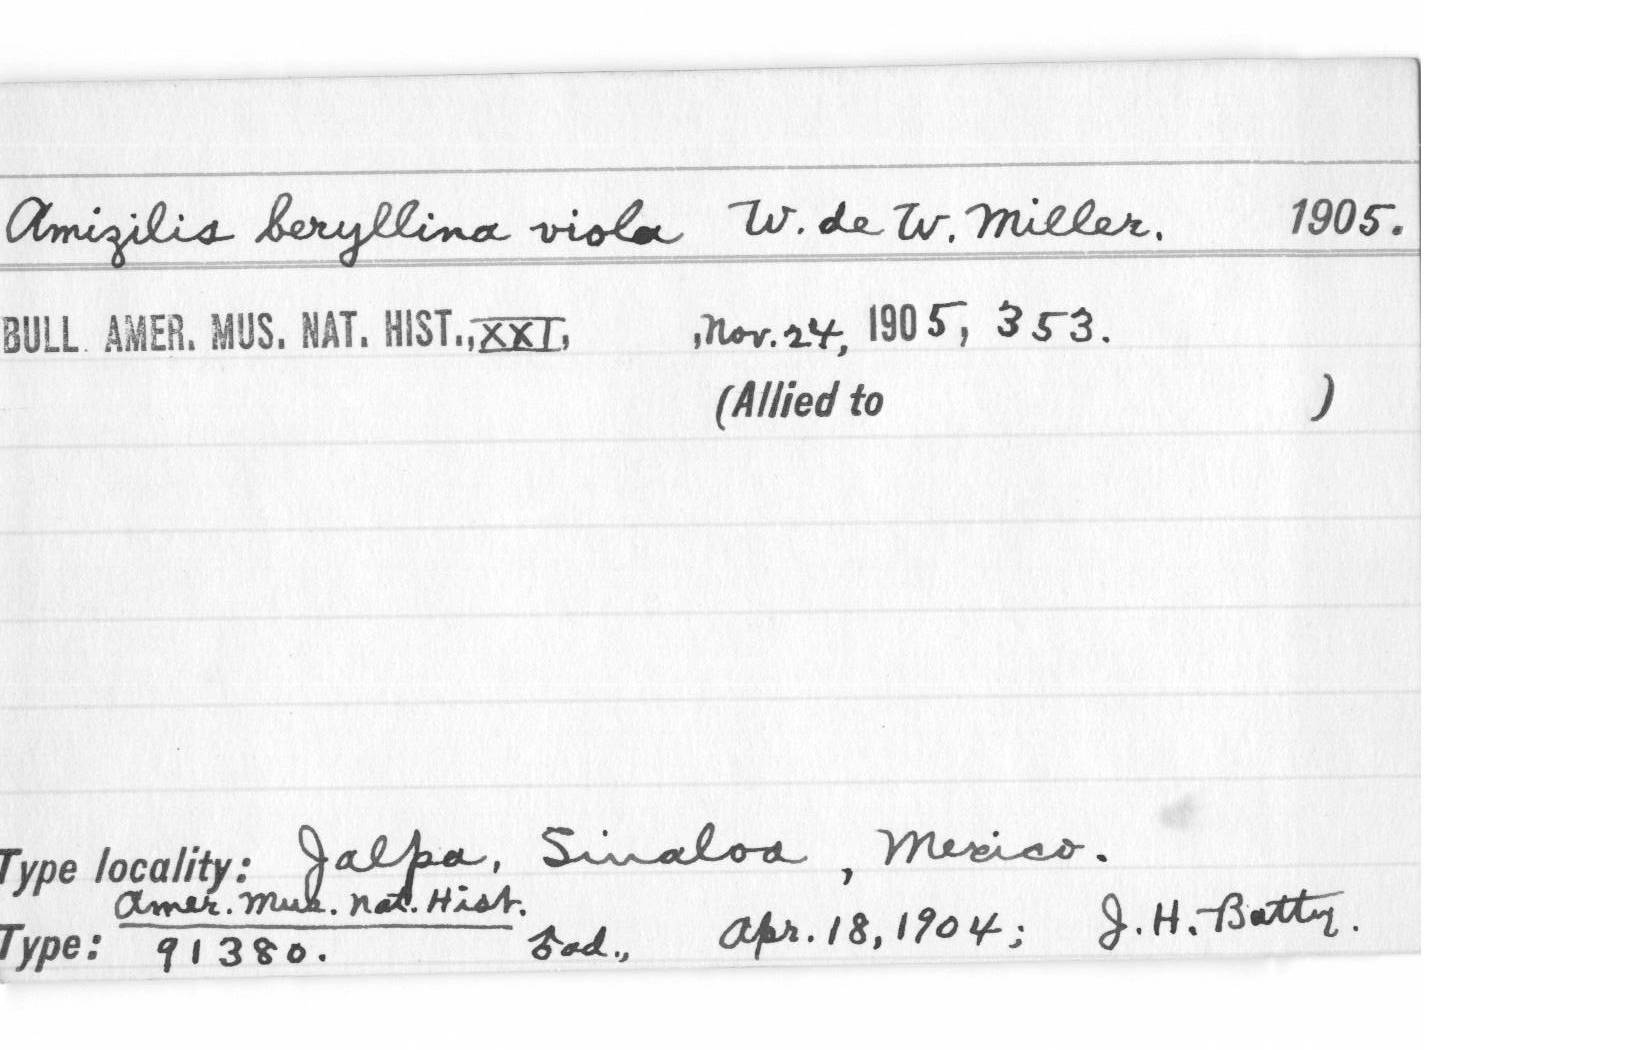 Amizilis beryllina viola W. de W. Miller. 1905.
BULL. AMER. MUS. NAT. HIST., XXI, , Nov. 24, 1905, 353.
(Allied to )
Type locality: Jalpa, Sinaloa, Mexico.
Amer. Mus. Nat. Hist.
Type: 91380. ad., Apr. 18, 1904; J. H. Batty.